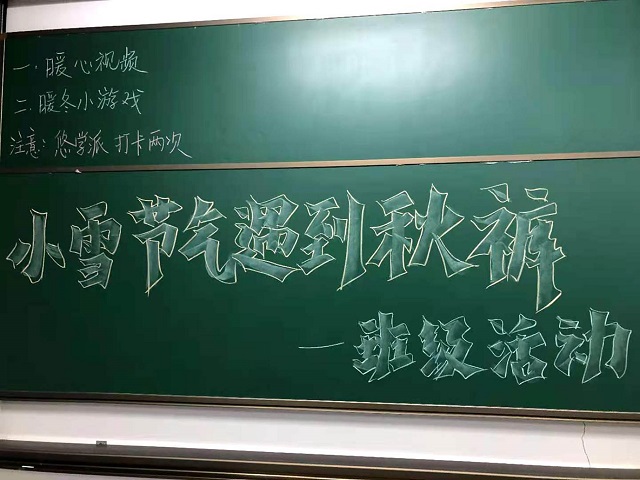 一.暖心视频
二.暖冬小游戏
注意:悠学派 打卡两次
小雪节气遇到秋裤
—班级活动